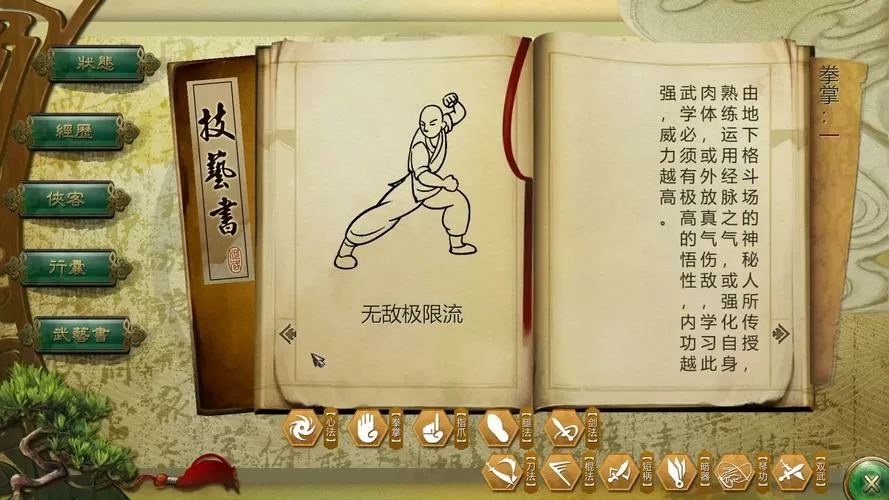 狀態
經歷
俠客
行囊
武藝書
技藝書
无敌极限流
拳掌：一
由地下格斗场的神秘人所传授，
熟练运用经脉之气，或强化自身
肉体，或外放真气伤敌，学习此
武学必须有极高的悟性，内功越
强，威力越高。
【心法】
【拳掌】
【指爪】
【腿法】
【剑法】
【刀法】
【棍法】
【短柄】
【暗器】
【琴功】
【双武】